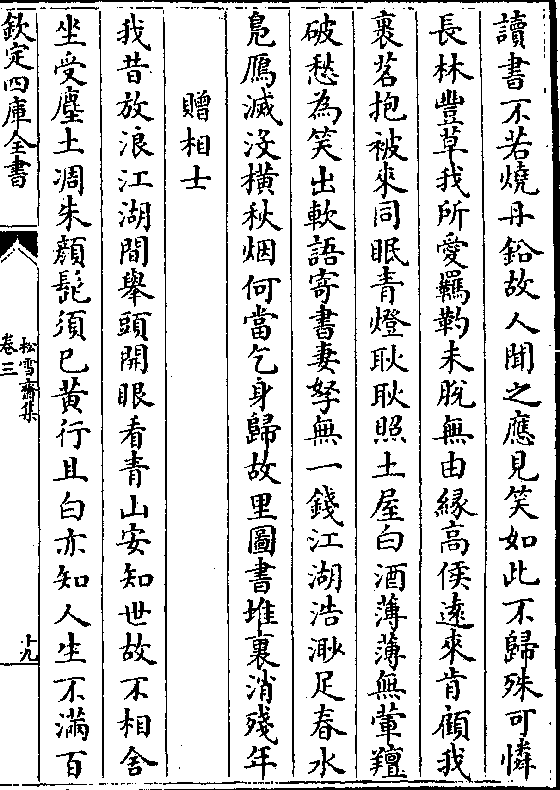 讀書不若燒丹鉛故人聞之應見笑如此不歸殊可憐
長林豐草我所愛羈靮未脫無由緣高侯逺來肯顧我
裹茗抱被來同眠青燈耿耿照土屋白酒薄薄無葷羶
破愁為笑出軟語寄書妻孥無一錢江湖浩渺足春水
鳬鴈滅没横秋烟何當乞身歸故里圖書堆裏消殘年
贈相士
我昔放浪江湖間舉頭開眼看青山安知世故不相舍
坐受塵土凋朱顔髭須已黄行且白亦知人生不滿百
欽定四庫全書
松雪齋集
卷三
十九